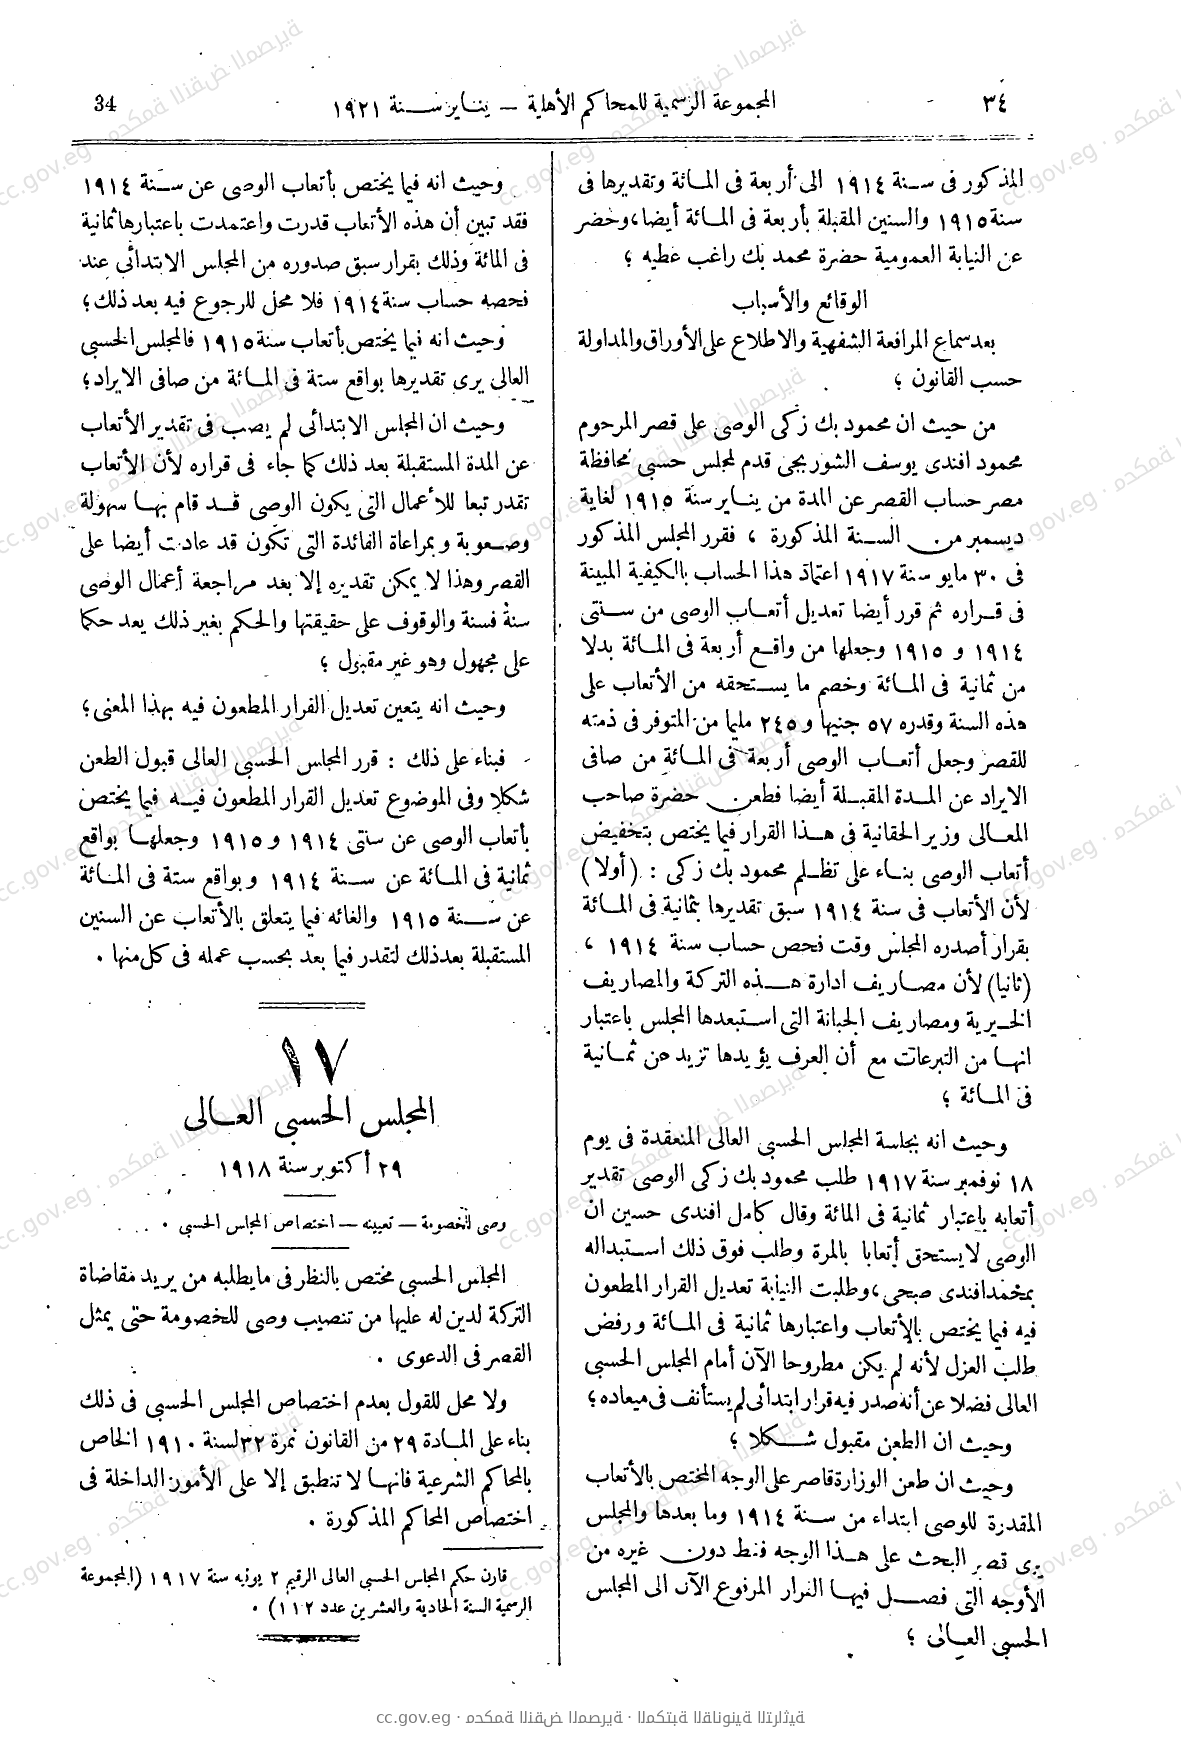 ٣٤
المجموعة الرسمية للمحاكم الأهلية — يناير سنة ١٩٢١
34
المذكور فى سنة ١٩١٤ الى أربعة فى المائة وتقديرها فى
سنة ١٩١٥ والسنين المقبلة بأربعة فى المائة أيضا، وحضر
عن النيابة العمومية حضرة محمد بك راغب عطيه ؛
الوقائع والأسباب
بعد سماع المرافعة الشفهية والاطلاع على الأوراق والمداولة
حسب القانون ؛
من حيث ان محمود بك زكى الوصى على قصر المرحوم
محمود افندى يوسف الشوربجى قدم لمجلس حسبى محافظة
مصر حساب القصر عن المدة من يناير سنة ١٩١٥ لغاية
ديسمبر من السنة المذكورة ، فقرر المجلس المذكور
فى ٣٠ مايو سنة ١٩١٧ اعتماد هذا الحساب بالكيفية المبينة
فى قراره ثم قرر أيضا تعديل أتعاب الوصى من سنتى
١٩١٤ و ١٩١٥ وجعلها من واقع أربعة فى المائة بدلا
من ثمانية فى المائة وخصم ما يستحقه من الأتعاب على
هذه السنة وقدره ٥٧ جنيها و ٢٤٥ مليما من المتوفر فى ذمته
للقصر وجعل أتعاب الوصى أربعة فى المائة من صافى
الايراد عن المدة المقبلة أيضا فطعن حضرة صاحب
المعالى وزير الحقانية فى هذا القرار فيما يختص بتخفيض
أتعاب الوصى بناء على تظلم محمود بك زكى : (أولا)
لأن الأتعاب فى سنة ١٩١٤ سبق تقديرها بثمانية فى المائة
بقرار أصدره المجلس وقت فحص حساب سنة ١٩١٤ ،
(ثانيا) لأن مصاريف ادارة هذه التركة والمصاريف
الخيرية ومصاريف الجبانة التى استبعدها المجلس باعتبار
انها من التبرعات مع أن العرف يؤيدها تزيد عن ثمانية
فى المائة ؛
وحيث انه بجلسة المجلس الحسبى العالى المنعقدة فى يوم
١٨ نوفمبر سنة ١٩١٧ طلب محمود بك زكى الوصى تقدير
أتعابه باعتبار ثمانية فى المائة وقال كامل افندى حسين ان
الوصى لا يستحق أتعابا بالمرة وطلب فوق ذلك استبداله
بمحمد افندى صبحى، وطلبت النيابة تعديل القرار المطعون
فيه فيما يختص بالأتعاب واعتبارها ثمانية فى المائة ورفض
طلب العزل لأنه لم يكن مطروحا الآن أمام المجلس الحسبى
العالى فضلا عن أنه صدر فيه قرار ابتدائى لم يستأنف فى ميعاده ؛
وحيث ان الطعن مقبول شكلا ؛
وحيث ان طعن الوزارة قاصر على الوجه المختص بالأتعاب
المقدرة للوصى ابتداء من سنة ١٩١٤ وما بعدها والمجلس
يرى قصر البحث على هذا الوجه فقط دون غيره من
الأوجه التى فصل فيها القرار المرفوع الآن الى المجلس
الحسبى العالى ؛
وحيث انه فيما يختص بأتعاب الوصى عن سنة ١٩١٤
فقد تبين أن هذه الأتعاب قدرت واعتمدت باعتبارها ثمانية
فى المائة وذلك بقرار سبق صدوره من المجلس الابتدائى عند
فحصه حساب سنة ١٩١٤ فلا محل للرجوع فيه بعد ذلك ؛
وحيث انه فيما يختص بأتعاب سنة ١٩١٥ فالمجلس الحسبى
العالى يرى تقديرها بواقع ستة فى المائة من صافى الايراد ؛
وحيث ان المجلس الابتدائى لم يصب فى تقدير الأتعاب
عن المدة المستقبلة بعد ذلك كما جاء فى قراره لأن الأتعاب
تقدر تبعا للأعمال التى يكون الوصى قد قام بها سهولة
وصعوبة وبمراعاة الفائدة التى تكون قد عادت أيضا على
القصر وهذا لا يمكن تقديره إلا بعد مراجعة أعمال الوصى
سنة فسنة والوقوف على حقيقتها والحكم بغير ذلك يعد حكما
على مجهول وهو غير مقبول ؛
وحيث انه يتعين تعديل القرار المطعون فيه بهذا المعنى ؛
فبناء على ذلك : قرر المجلس الحسبى العالى قبول الطعن
شكلا وفى الموضوع تعديل القرار المطعون فيه فيما يختص
بأتعاب الوصى عن سنتى ١٩١٤ و ١٩١٥ وجعلها بواقع
ثمانية فى المائة عن سنة ١٩١٤ وبواقع ستة فى المائة
عن سنة ١٩١٥ والغائه فيما يتعلق بالأتعاب عن السنين
المستقبلة بعد ذلك لتقدر فيما بعد بحسب عمله فى كل منها .
١٧
المجلس الحسبى العالى
٢٩ أكتوبر سنة ١٩١٨
وصى الخصومة — تعيينه — اختصاص المجلس الحسبى .
المجلس الحسبى مختص بالنظر فى ما يطلبه من يريد مقاضاة
التركة لدين له عليها من تنصيب وصى للخصومة حتى يمثل
القصر فى الدعوى .
ولا محل للقول بعدم اختصاص المجلس الحسبى فى ذلك
بناء على المادة ٢٩ من القانون نمرة ٣٢ لسنة ١٩١٠ الخاص
بالمحاكم الشرعية فانها لا تنطبق إلا على الأمور الداخلة فى
اختصاص المحاكم المذكورة .
قارن حكم المجلس الحسبى العالى الرقيم ٢ يونيه سنة ١٩١٧ (المجموعة
الرسمية السنة الحادية والعشرين عدد ١١٢) .
cc.gov.eg · محكمة النقض المصرية · المكتبة القانونية التراثية